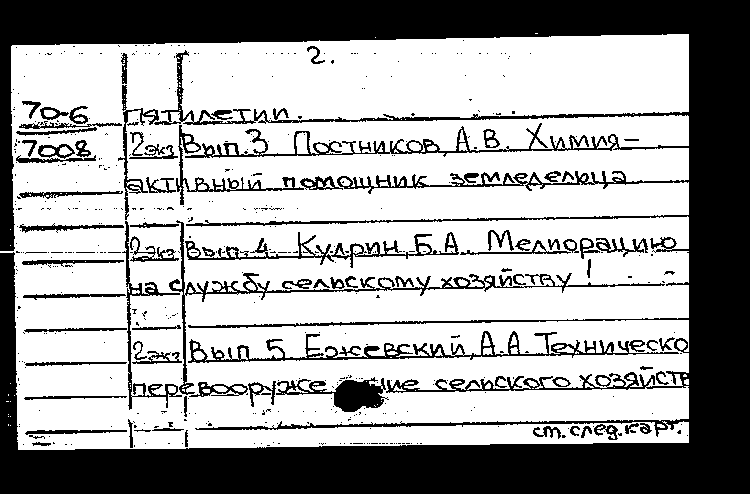 2.
70-6 пятилетии.
7008 2экз Вып.3 Постников, А.В. Химия-
активный помощник земледельца
2экз Вып.4. Кудрин, Б.А. Мелиорацию
на службу сельскому хозяйству!
2экз Вып 5 Ежевский, А.А. Техническо
перевооруже ние сельского хозяйств
см. след. карт.